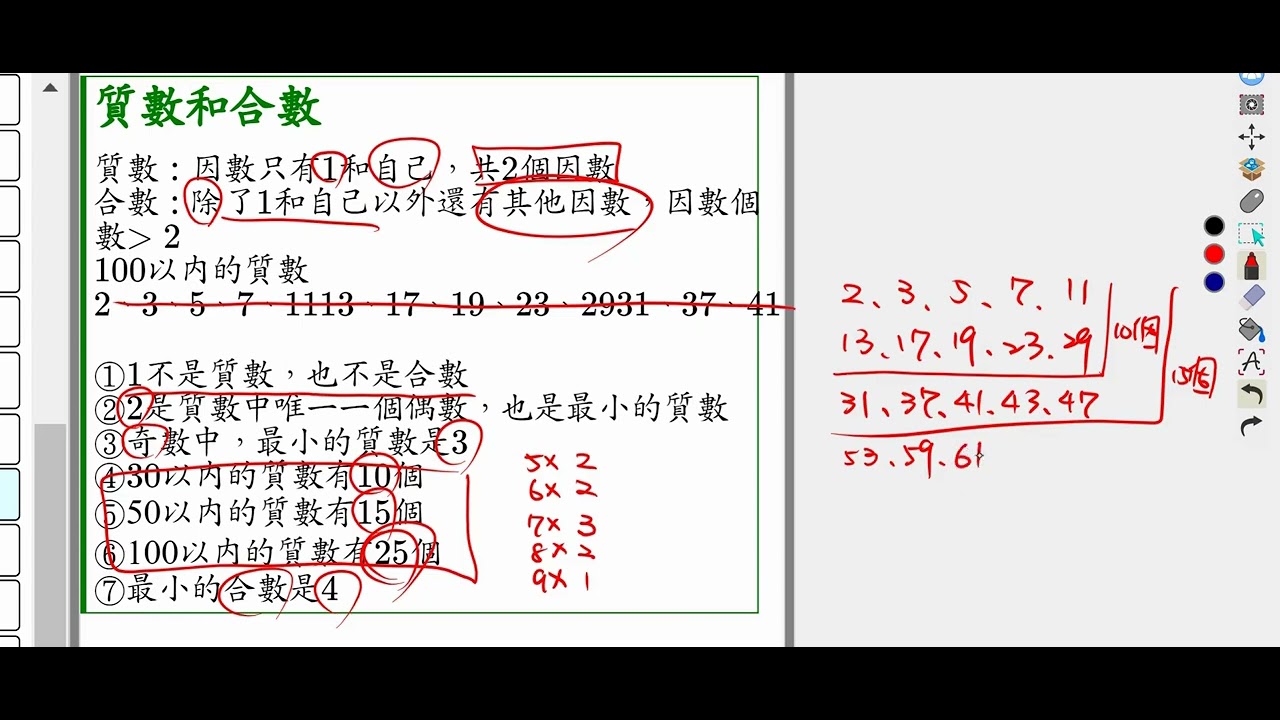 質數和合數
質數：因數只有1和自己，共2個因數
合數：除了1和自己以外還有其他因數，因數個
數> 2
100以內的質數
2、3、5、7、1113、17、19、23、2931、37、41
①1不是質數，也不是合數
②2是質數中唯一一個偶數，也是最小的質數
③奇數中，最小的質數是3
④30以內的質數有10個
⑤50以內的質數有15個
⑥100以內的質數有25個
⑦最小的合數是4
5x 2
6x 2
7x 3
8x 2
9x 1
2、3、5、7、11
13、17、19、23、29
10個
31、37、41、43、47
15個
53、59、61
A